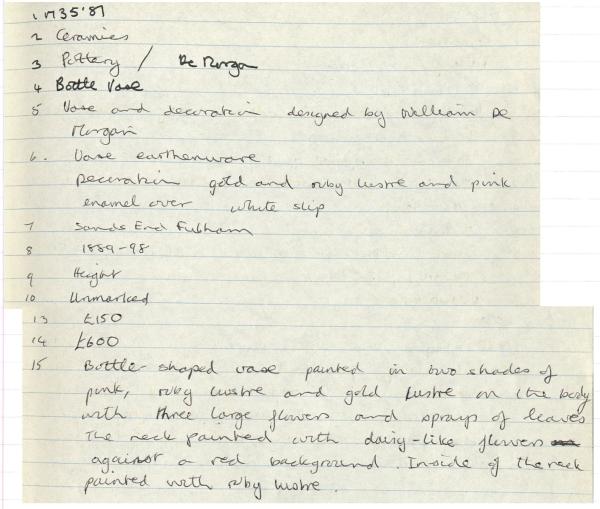 1 M35'87
2 Ceramics
3 Pottery / De Morgan
4 Bottle Vase
5 Vase and decoration designed by William De
Morgan
6. Vase earthenware
Decoration gold and ruby lustre and pink
enamel over white slip
7 Sands End Fulham
8 1889-98
9 Height
10 Unmarked
13 £150
14 £600
15 Bottle shaped vase painted in two shades of
pink, ruby lustre and gold lustre on the body
with three large flowers and sprays of leaves
The neck painted with daisy-like flowers
against a red background. Inside of the neck
painted with ruby lustre.